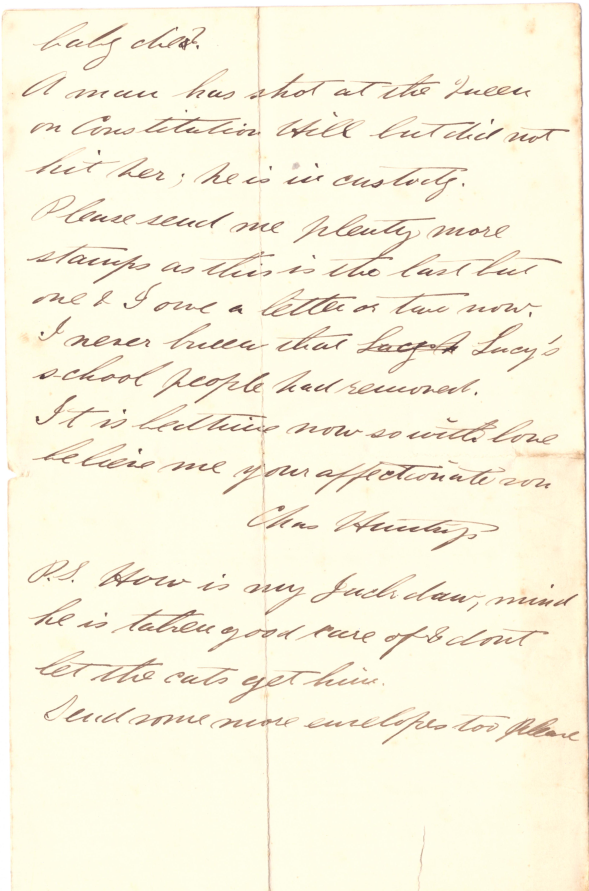 baby died.
A man has shot at the Queen
on Constitution Hill but did not
hit her; he is in custody.
Please send me plenty more
stamps as this is the last but
one & I owe a letter or two now.
I never knew that Lucy's
school people had removed.
It is bedtime now so with love
believe me your affectionate son
Chas
P.S. How is my Jackdaw, mind
he is taken good care of & dont
let the cats get him.
Send some more envelopes too please